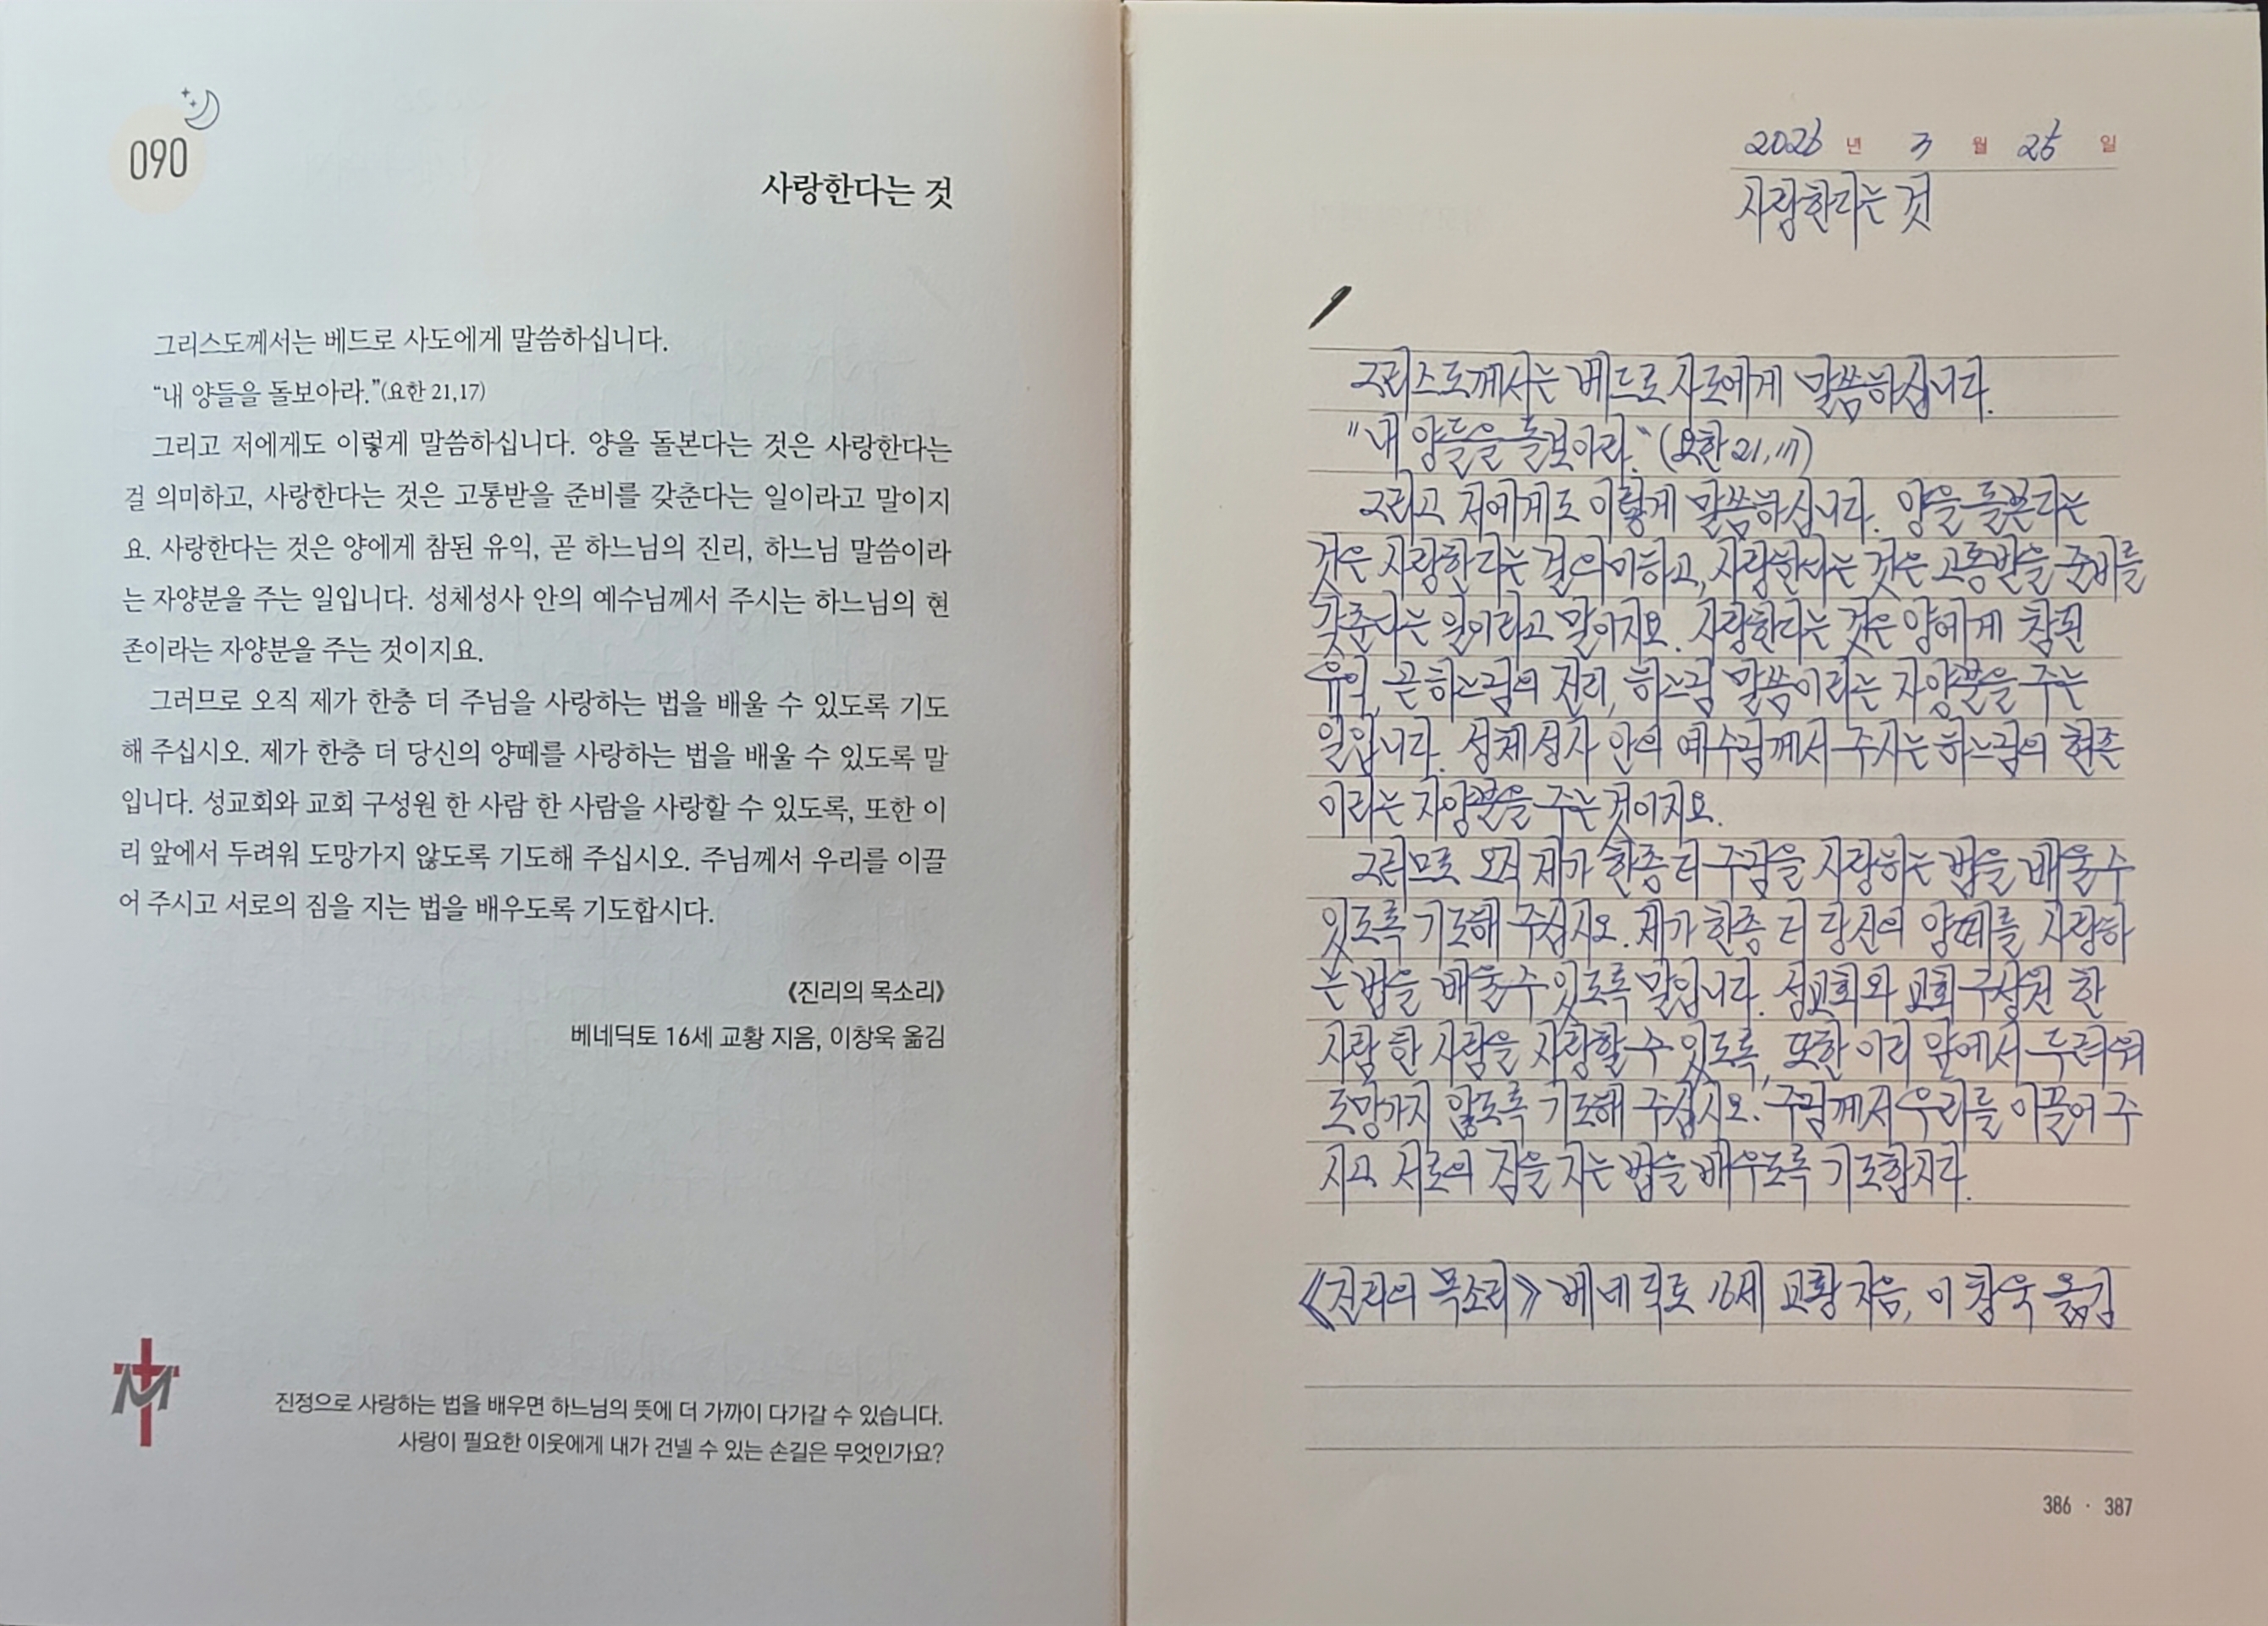 090
사랑한다는 것
그리스도께서는 베드로 사도에게 말씀하십니다.
“내 양들을 돌보아라.”(요한 21,17)
그리고 저에게도 이렇게 말씀하십니다. 양을 돌본다는 것은 사랑한다는
걸 의미하고, 사랑한다는 것은 고통받을 준비를 갖춘다는 일이라고 말이지
요. 사랑한다는 것은 양에게 참된 유익, 곧 하느님의 진리, 하느님 말씀이라
는 자양분을 주는 일입니다. 성체성사 안의 예수님께서 주시는 하느님의 현
존이라는 자양분을 주는 것이지요.
그러므로 오직 제가 한층 더 주님을 사랑하는 법을 배울 수 있도록 기도
해 주십시오. 제가 한층 더 당신의 양떼를 사랑하는 법을 배울 수 있도록 말
입니다. 성교회와 교회 구성원 한 사람 한 사람을 사랑할 수 있도록, 또한 이
리 앞에서 두려워 도망가지 않도록 기도해 주십시오. 주님께서 우리를 이끌
어 주시고 서로의 짐을 지는 법을 배우도록 기도합시다.
《진리의 목소리》
베네딕토 16세 교황 지음, 이창욱 옮김
진정으로 사랑하는 법을 배우면 하느님의 뜻에 더 가까이 다가갈 수 있습니다.
사랑이 필요한 이웃에게 내가 건넬 수 있는 손길은 무엇인가요?
2026 년 3 월 25 일
사랑한다는 것
그리스도께서는 베드로 사도에게 말씀하십니다.
"내 양들을 돌보아라." (요한 21,17)
그리고 저에게도 이렇게 말씀하십니다. 양을 돌본다는
것은 사랑한다는 걸 의미하고, 사랑한다는 것은 고통받을 준비를
갖춘다는 일이라고 말이지요. 사랑한다는 것은 양에게 참된
유익, 곧 하느님의 진리, 하느님 말씀이라는 자양분을 주는
일입니다. 성체성사 안의 예수님께서 주시는 하느님의 현존
이라는 자양분을 주는 것이지요.
그러므로 오직 제가 한층 더 주님을 사랑하는 법을 배울 수
있도록 기도해 주십시오. 제가 한층 더 당신의 양떼를 사랑하
는 법을 배울 수 있도록 말입니다. 성교회와 교회 구성원 한
사람 한 사람을 사랑할 수 있도록, 또한 이리 앞에서 두려워
도망가지 않도록 기도해 주십시오. 주님께서 우리를 이끌어 주
시고 서로의 짐을 지는 법을 배우도록 기도합시다.
《진리의 목소리》 베네딕토 16세 교황 지음, 이창욱 옮김
386 · 387